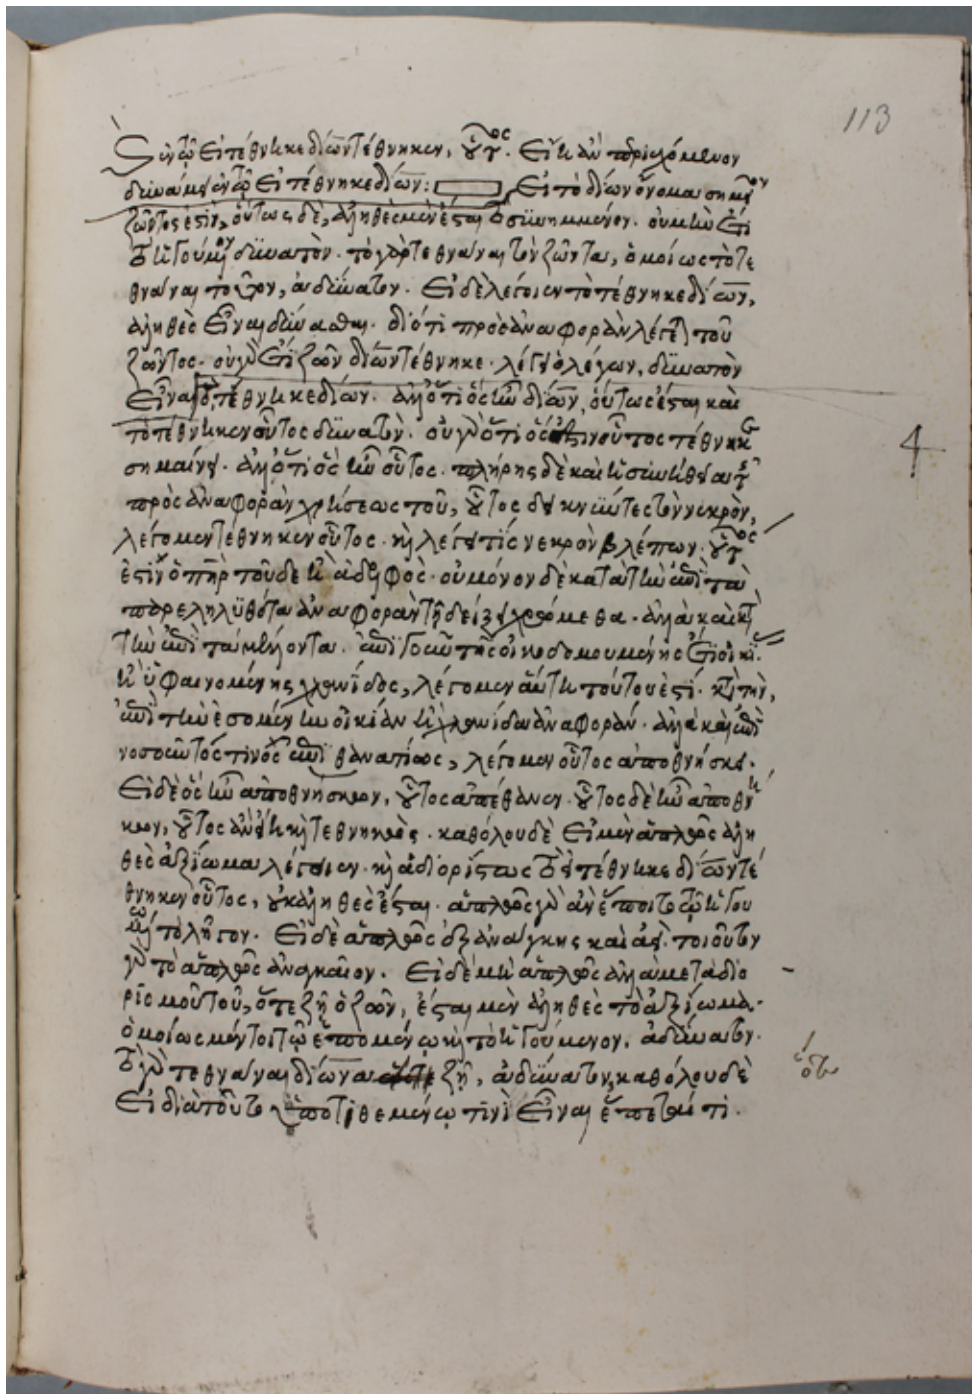 113
ἐν τῷ εἰ τέθνηκε δίων τέθνηκεν οὗτος. Εἴη ἂν περιεχόμενον
ἐν τῷ εἰ τέθνηκε δίων: Εἰ τὸ δίων ὄνομα σημεῖον
ζῶντος ἐστὶν, οὕτως δὲ, ἀληθὲς μὲν ἔσται τὸ συνημμένον. οὐ μὴν ἔτι
τὸ ἡγούμενον δυνατὸν. τὸ γὰρ τεθνάναι τὸν ζῶντα, ὁμοίως τὸ τε
θνάναι τὸ ζῶον, ἀδύνατον. Εἰ δὲ λέγοιεν τὸ τέθνηκε δίων,
ἀληθὲς εἶναι δύνασθαι. διότι πρὸς ἀναφορὰν λέγεται τοῦ
ζῶντος. οὐ γὰρ ἔτι ζῶν δίων τέθνηκε. λέγει ὁ λέγων, δυνατὸν
εἶναι τὸ, τέθνηκε δίων. ἀλλ' ὅτι ὃς ἦν δίων, οὕτως ἔσται καὶ
τὸ τέθνηκεν οὗτος δυνατὸν. οὐ γὰρ ὅτι ὅς ἐστιν οὗτος τέθνηκε
σημαίνει. ἀλλ' ὅτι ὃς ἦν οὗτος. πλήρης δὲ καὶ ἡ συνήθεια τῆς
πρὸς ἀναφορὰν χρήσεως τοῦ, οὗτος δεικνύντες τὸν νεκρὸν,
λέγομεν τέθνηκεν οὗτος. καὶ λέγει τίς νεκρὸν βλέπων. οὗτος
ἐστὶν ὁ πατὴρ τοῦδε ἢ ἀδελφός. οὐ μόνον δὲ κατὰ τὴν ἐπὶ τὰ
παρεληλυθότα ἀναφορὰν τῇ δείξει χρώμεθα. ἀλλὰ καὶ κατὰ
τὴν ἐπὶ τὰ μέλλοντα. ἐπὶ γοῦν τῆς οἰκοδομουμένης ἔτι οἰκίας
ἢ ὑφαινομένης χλανίδος, λέγομεν αὕτη τούτου ἐστί. κατὰ τὴν,
ἐπὶ τὴν ἐσομένην οἰκίαν ἢ χλανίδα ἀναφοράν. ἀλλὰ καὶ ἐπὶ
νοσοῦντός τινος ἐπὶ θανασίμως, λέγομεν οὗτος ἀποθνήσκει.
Εἰ δὲ ὃς ἦν ἀποθνήσκων, οὗτος ἀπέθανεν. οὗτος δὲ ἦν ἀποθνή
σκων, οὗτος ἂν εἴη καὶ τεθνηκώς. καθόλου δὲ εἰ μὲν ἁπλῶς ἀλη
θὲς ἀξίωμα λέγοιεν. καὶ ἀδιορίστως τὸ εἰ τέθνηκε δίων τέ
θνηκεν οὗτος, οὐκ ἀληθὲς ἔσται. ἁπλῶς γὰρ ἂν ἕποιτο τῷ ἡγου
μένῳ τὸ λῆγον. Εἰ δὲ ἁπλῶς ἐξ ἀνάγκης καὶ ἀεί. τοιοῦτον
γὰρ τὸ ἁπλῶς ἀναγκαῖον. Εἰ δὲ μὴ ἁπλῶς ἀλλὰ μετὰ διο
ρισμοῦ τοῦ, ὅτε ζῇ ὁ ζῶν, ἔσται μὲν ἀληθὲς τὸ ἀξίωμα.
ὁμοίως μέντοι τῷ ἑπομένῳ καὶ τὸ ἡγούμενον, ἀδύνατον.
τὸ γὰρ τεθνάναι δίωνα ζῇ, ἀδύνατον, καθόλου δὲ
εἰ διὰ τοῦτο ὑποτιθεμένῳ τινὶ εἶναι ἕπεταί τι.